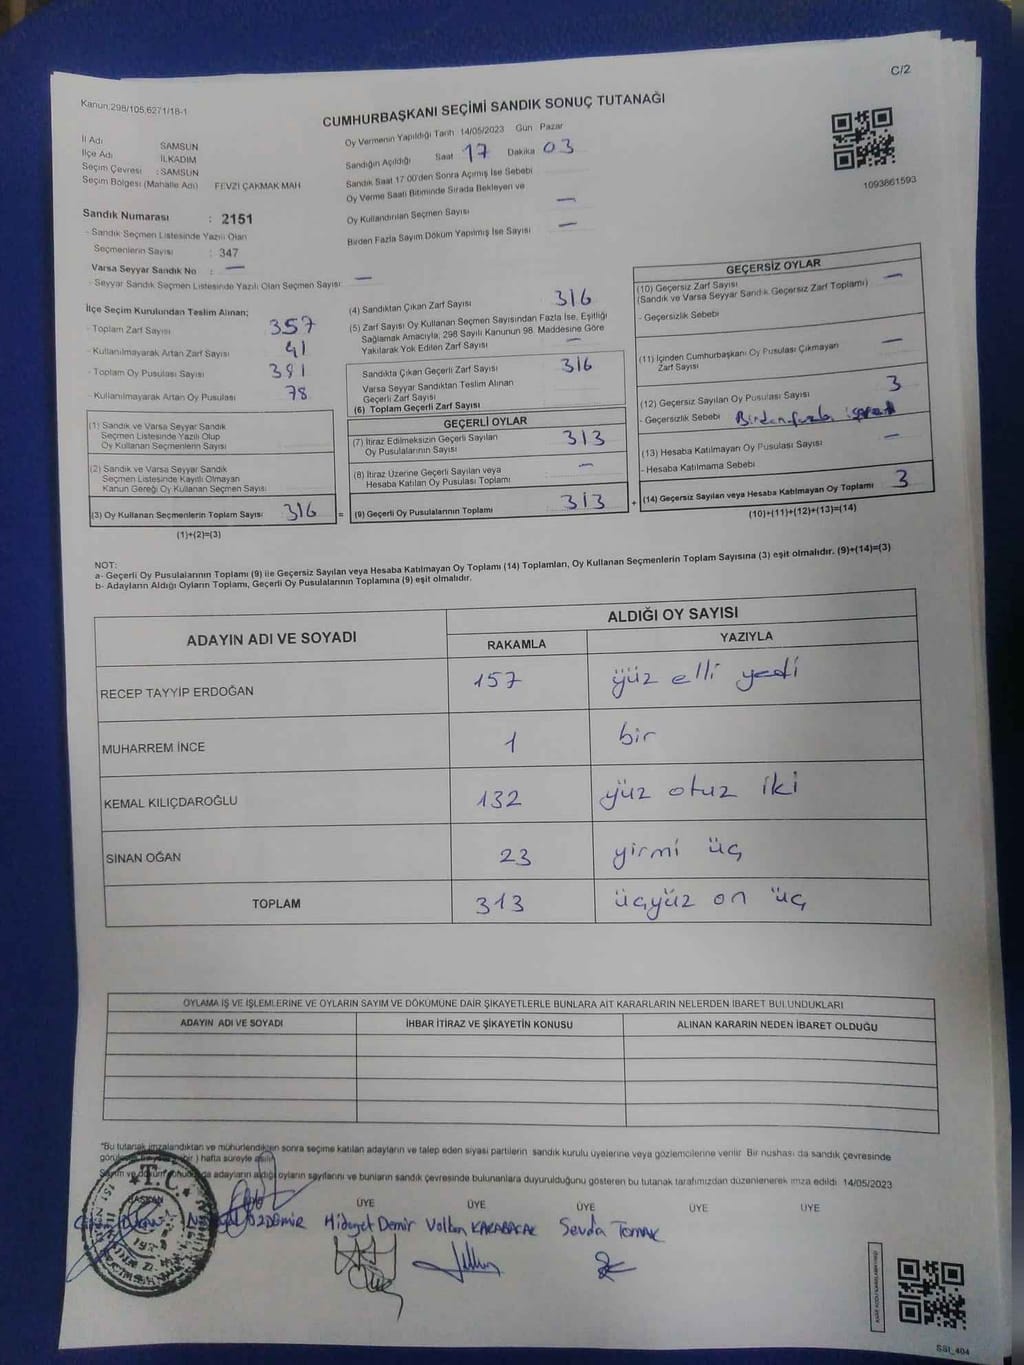 C/2
Kanun:298/105,6271/18-1
CUMHURBAŞKANI SEÇİMİ SANDIK SONUÇ TUTANAĞI
İl Adı SAMSUN
İlçe Adı İLKADIM
Seçim Çevresi : SAMSUN
Seçim Bölgesi (Mahalle Adı) FEVZİ ÇAKMAK MAH
Oy Vermenin Yapıldığı Tarih 14/05/2023 Gün Pazar
Sandığın Açıldığı Saat 17 Dakika 03
Sandık Saat 17:00'den Sonra Açımış İse Sebebi
Oy Verme Saati Bitiminde Sırada Bekleyen ve
Oy Kullandırılan Seçmen Sayısı —
Birden Fazla Sayım Döküm Yapılmış İse Sayısı —
1093861593
Sandık Numarası : 2151
- Sandık Seçmen Listesinde Yazılı Olan
Seçmenlerin Sayısı : 347
Varsa Seyyar Sandık No : —
- Seyyar Sandık Seçmen Listesinde Yazılı Olan Seçmen Sayısı: —
İlçe Seçim Kurulundan Teslim Alınan;
- Toplam Zarf Sayısı 357
- Kullanılmayarak Artan Zarf Sayısı 41
- Toplam Oy Pusulası Sayısı 391
- Kullanılmayarak Artan Oy Pusulası 78
(1) Sandık ve Varsa Seyyar Sandık
Seçmen Listesinde Yazılı Olup
Oy Kullanan Seçmenlerin Sayısı
(2) Sandık ve Varsa Seyyar Sandık
Seçmen Listesinde Kayıtlı Olmayan
Kanun Gereği Oy Kullanan Seçmen Sayısı
(3) Oy Kullanan Seçmenlerin Toplam Sayısı 316 =
(1)+(2)=(3)
(4) Sandıktan Çıkan Zarf Sayısı 316
(5) Zarf Sayısı Oy Kullanan Seçmen Sayısından Fazla İse, Eşitliği
Sağlamak Amacıyla, 298 Sayılı Kanunun 98. Maddesine Göre
Yakılarak Yok Edilen Zarf Sayısı —
Sandıkta Çıkan Geçerli Zarf Sayısı 316
Varsa Seyyar Sandıktan Teslim Alınan
Geçerli Zarf Sayısı
(6) Toplam Geçerli Zarf Sayısı
GEÇERLİ OYLAR
(7) İtiraz Edilmeksizin Geçerli Sayılan
Oy Pusulalarının Sayısı 313
(8) İtiraz Üzerine Geçerli Sayılan veya
Hesaba Katılan Oy Pusulası Toplamı —
(9) Geçerli Oy Pusulalarının Toplamı 313 +
GEÇERSİZ OYLAR
(10) Geçersiz Zarf Sayısı
(Sandık ve Varsa Seyyar Sandık Geçersiz Zarf Toplamı) —
- Geçersizlik Sebebi
(11) İçinden Cumhurbaşkanı Oy Pusulası Çıkmayan
Zarf Sayısı —
(12) Geçersiz Sayılan Oy Pusulası Sayısı 3
- Geçersizlik Sebebi Birden fazla işaret
(13) Hesaba Katılmayan Oy Pusulası Sayısı —
- Hesaba Katılmama Sebebi
(14) Geçersiz Sayılan veya Hesaba Katılmayan Oy Toplamı 3
(10)+(11)+(12)+(13)=(14)
NOT:
a- Geçerli Oy Pusulalarının Toplamı (9) ile Geçersiz Sayılan veya Hesaba Katılmayan Oy Toplamı (14) Toplamları, Oy Kullanan Seçmenlerin Toplam Sayısına (3) eşit olmalıdır. (9)+(14)=(3)
b- Adayların Aldığı Oyların Toplamı, Geçerli Oy Pusulalarının Toplamına (9) eşit olmalıdır.
ADAYIN ADI VE SOYADI ALDIĞI OY SAYISI
RAKAMLA YAZIYLA
RECEP TAYYİP ERDOĞAN 157 yüz elli yedi
MUHARREM İNCE 1 bir
KEMAL KILIÇDAROĞLU 132 yüz otuz iki
SİNAN OĞAN 23 yirmi üç
TOPLAM 313 üçyüz on üç
OYLAMA İŞ VE İŞLEMLERİNE VE OYLARIN SAYIM VE DÖKÜMÜNE DAİR ŞİKAYETLERLE BUNLARA AİT KARARLARIN NELERDEN İBARET BULUNDUKLARI
ADAYIN ADI VE SOYADI İHBAR İTİRAZ VE ŞİKAYETİN KONUSU ALINAN KARARIN NEDEN İBARET OLDUĞU
*Bu tutanak imzalandıktan ve mühürlendikten sonra seçime katılan adayların ve talep eden siyasi partilerin sandık kurulu üyelerine veya gözlemcilerine verilir. Bir nüshası da sandık çevresinde
bir ) hafta süreyle asılır.
adayların aldığı oyların sayılarını ve bunların sandık çevresinde bulunanlara duyurulduğunu gösteren bu tutanak tarafımızdan düzenlenerek imza edildi. 14/05/2023
T.C.
BAŞKAN ÜYE ÜYE ÜYE ÜYE ÜYE
ÖZDEMİR Hidayet Demir Volkan KARABACAK Sevda Tomak
SSİ_404